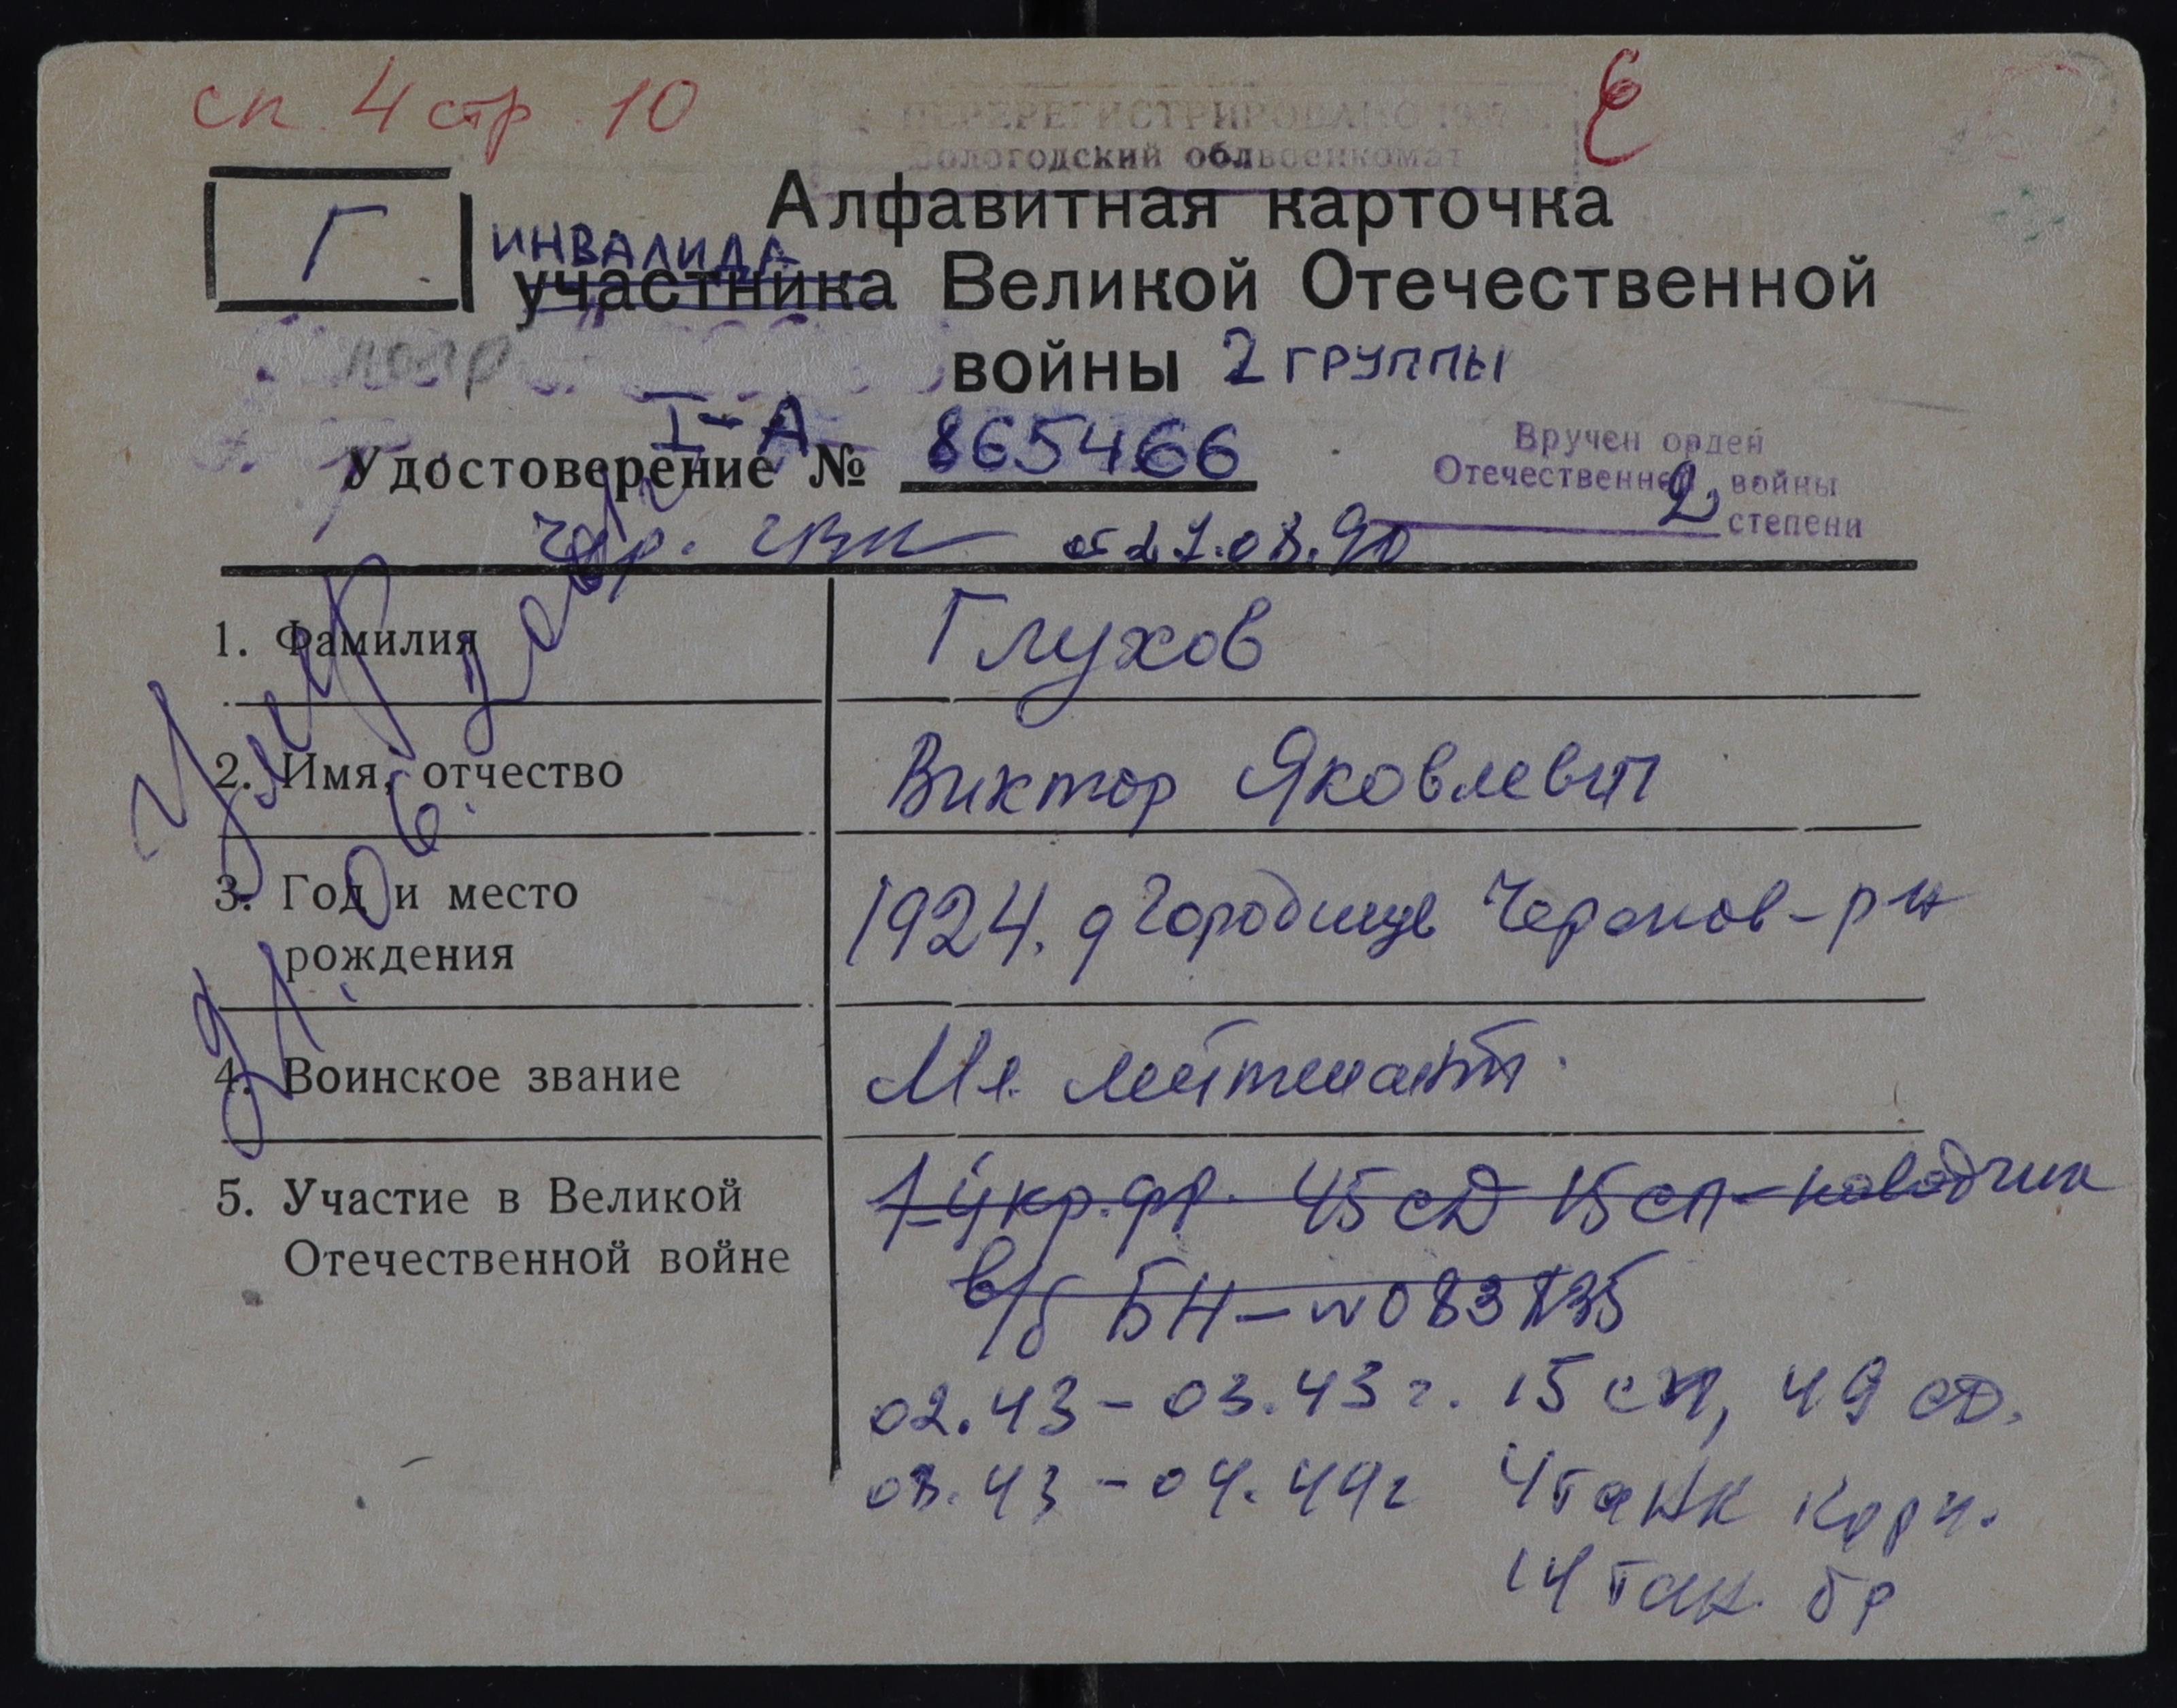 сп. 4 стр. 10
Е
ПЕРЕРЕГИСТРИРОВАНО
Вологодский облвоенкомат
Г
Алфавитная карточка
ИНВАЛИДА
участника Великой Отечественной
войны 2 ГРУППЫ
I-А
Удостоверение № 865466
Вручен орден
Отечественной войны
2 степени
Чер. ГВК от 21.08.90
Умер
1. Фамилия Глухов
2. Имя, отчество Виктор Яковлевич
3. Год и место рождения 1924. д Городище Черепов-р-н
4. Воинское звание Мл. лейтенант.
5. Участие в Великой Отечественной войне
1-Укр. фр. 45 сД 15 сп-наводчик
в/б БН-№
02.43-03.43г. 15 сп, 49 сД.
03.43-04.44г 4 танк корп.
14 тан. бр